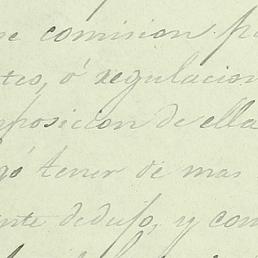 se comision p
tes, ó regulacion
mposicion de ella
gó tener de mas
ente dedujo, y con